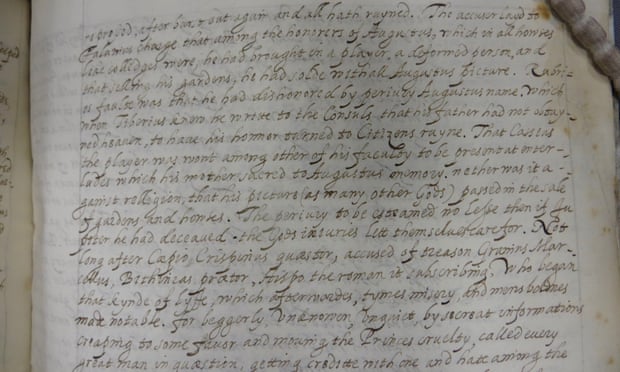 is probed, after burst out again and all hath ruyned. The accuser layd to
Falanius charge that among the honorers of Augustus, which in all howses
like colledges were, he had brought in a player, a deformed person, and
that selling his gardens, he had solde withall Augustus picture. Rubri-
us faulte was that he had dishonored by periury Augustus name, which
when Tiberius knew he wrote to the Consuls, that his father had not obtay-
ned heaven, to have his honner turned to Citizens ruyne. That Cassius
the player was wont among other of his faculty to be present at enter-
ludes which his mother sacred to Augustus memory. nether was it a-
gainst relligion, that his picture (as many other Gods) passed in the sale
of gardens and howses. The periury to be esteamed no lesse then if Ju
piter he had deceaved - the Gods iniuries lett themselves care for. Not
long after Cæpio Crispinus quæstor, accused of treason Granius Mar-
cellus, Bithineas prætor, Hispo the roman it subscribing. Who began
that kynde of lyffe, which afterwardes, tymes misery, and mens boldnes
made notable. for beggerly, unknowen, unquiet, by secreat informations
creaping to some favor and moving the Princes cruelty, called every
great man in quæstion, getting creditte with one and hate among the